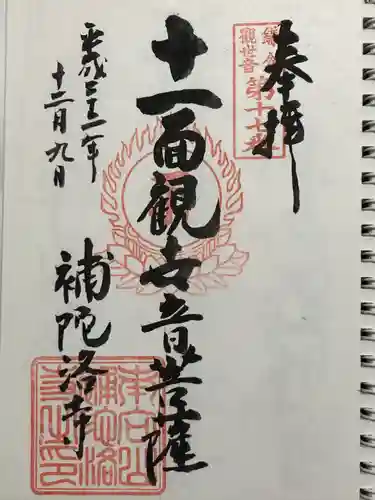 奉拝
鎌倉
観世音
第十七番
十一面観世音菩薩
平成二十二年
十二月九日
補陀洛寺